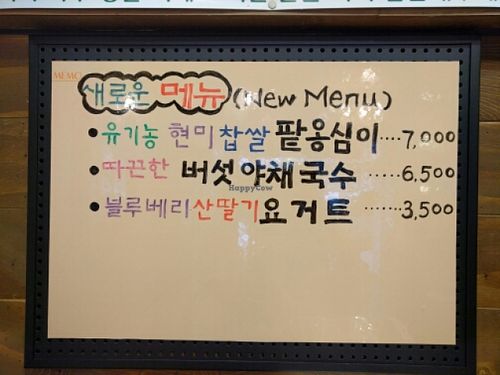 MEMO
새로운 메뉴 (New Menu)
• 유기농 현미 찹쌀 팥옹심이....7,000
• 따끈한 버섯야채국수 .....6,500
• 블루베리산딸기요거트 ......3,500
HappyCow